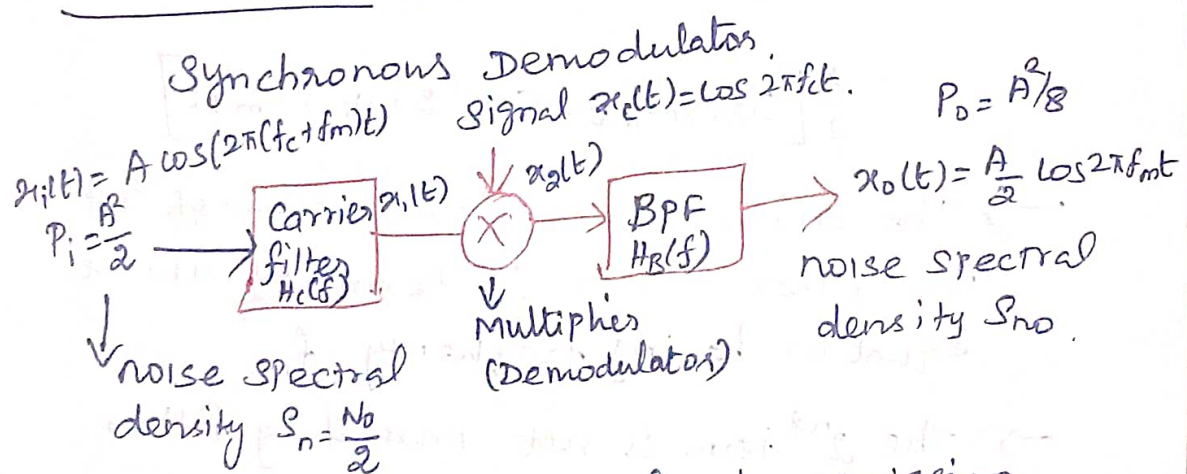 Synchronous Demodulator.
signal x_c(t) = cos 2πfct.
P_0 = A²/8
x_i(t) = A cos(2π(fc+fm)t)
P_i = A²/2
Carrier
filter
H_c(f)
x_1(t)
×
x_2(t)
BPF
H_B(f)
x_0(t) = A/2 cos2πfmt
noise spectral
density S_no.
Multiplier
(Demodulator).
noise spectral
density S_n = N_0/2